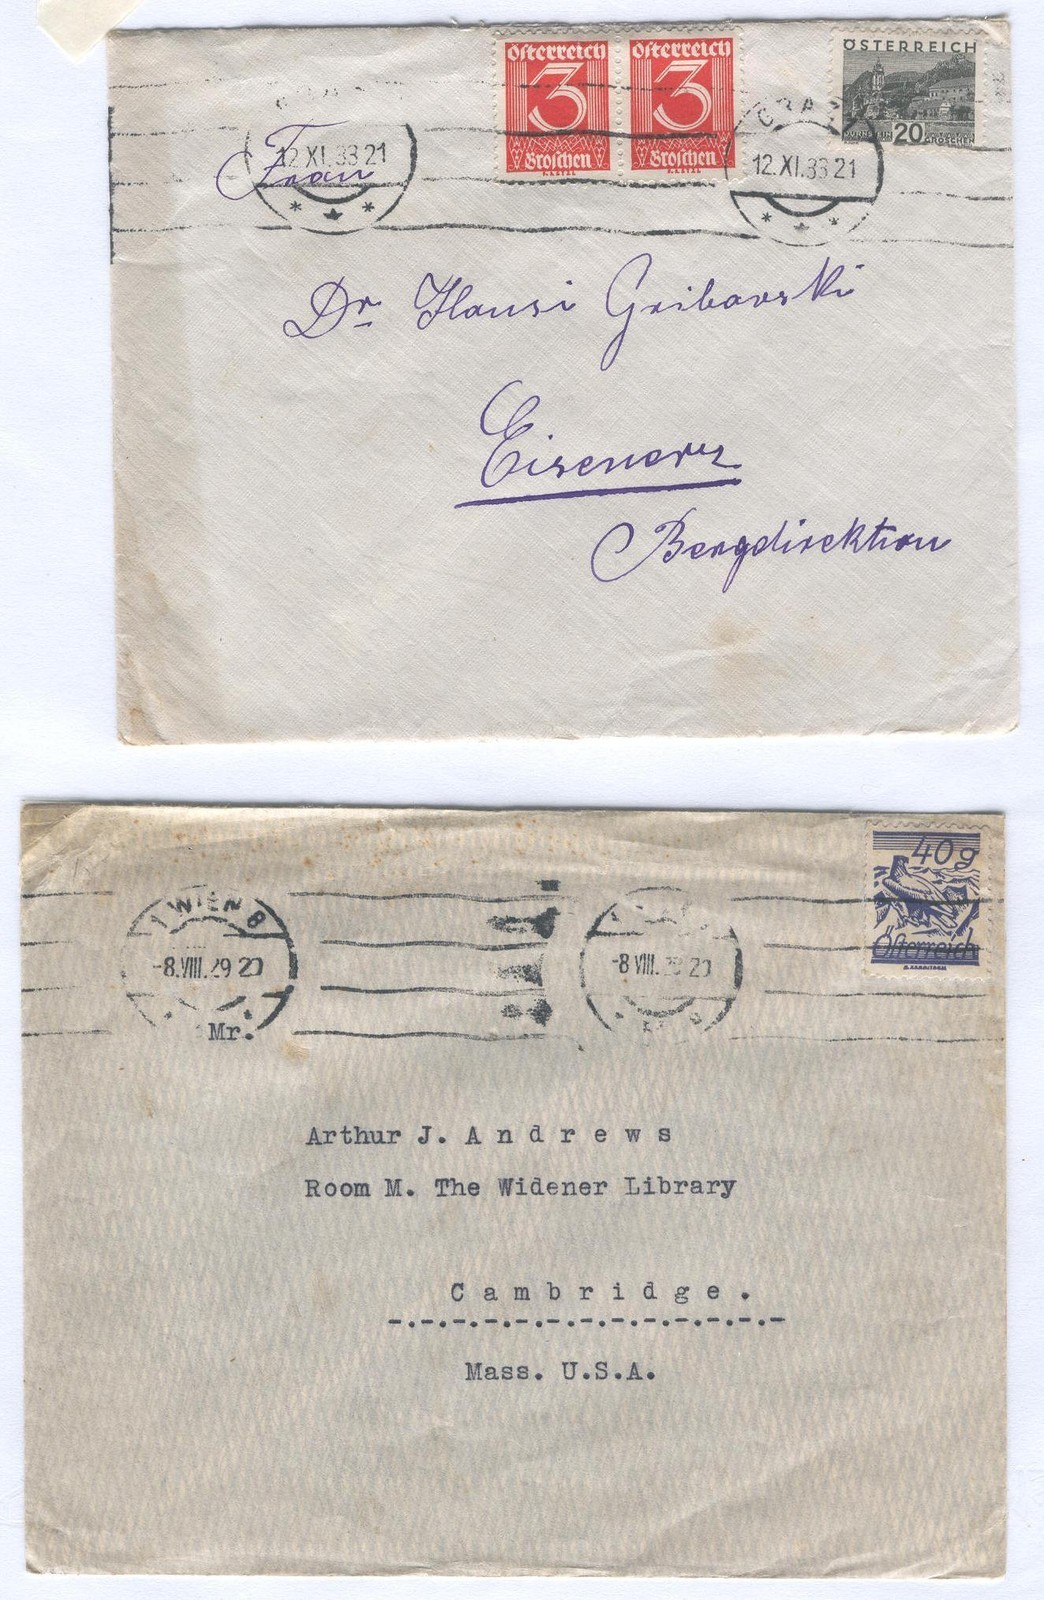 Österreich Österreich ÖSTERREICH
3 3
Groschen Groschen DÜRNSTEIN 20 GROSCHEN
GRAZ
12.XI.33 21 12.XI.33 21
Frau
Dr Hansi Gribovski
Eisenerz
Bergdirektion
40g
Österreich
1 WIEN 8
-8.VIII.29 20 -8.VIII.29 20
Mr.
Arthur J. Andrews
Room M. The Widener Library
Cambridge.
-.-.-.-.-.-.-.-.-.-.-.-.-
Mass. U.S.A.